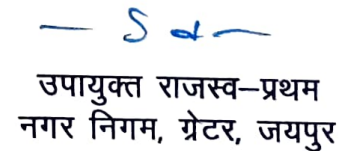 — Sd —
उपायुक्त राजस्व–प्रथम
नगर निगम, ग्रेटर, जयपुर